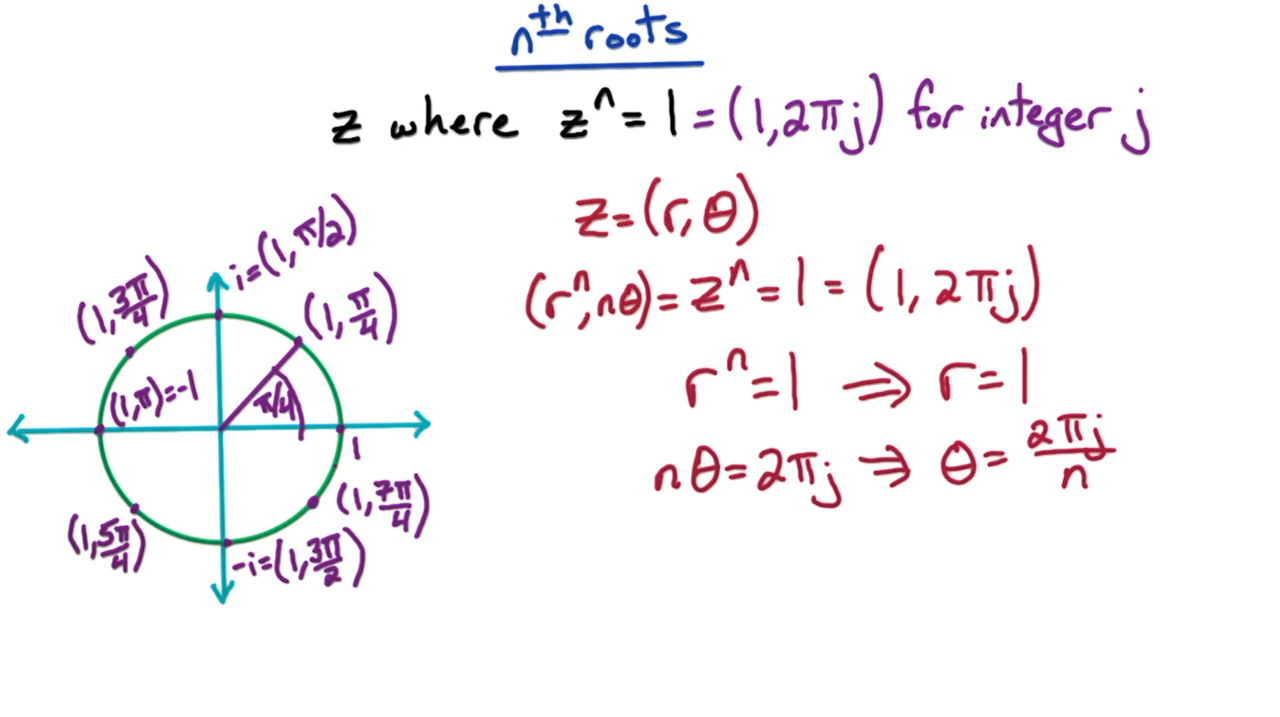 nth roots
z where zⁿ = 1 = (1, 2πj) for integer j
z = (r, θ)
(rⁿ, nθ) = zⁿ = 1 = (1, 2πj)
rⁿ = 1 ⇒ r = 1
nθ = 2πj ⇒ θ = 2πj/n
i = (1, π/2)
(1, 3π/4)
(1, π/4)
(1, π) = -1
π/4
1
(1, 7π/4)
(1, 5π/4)
-i = (1, 3π/2)